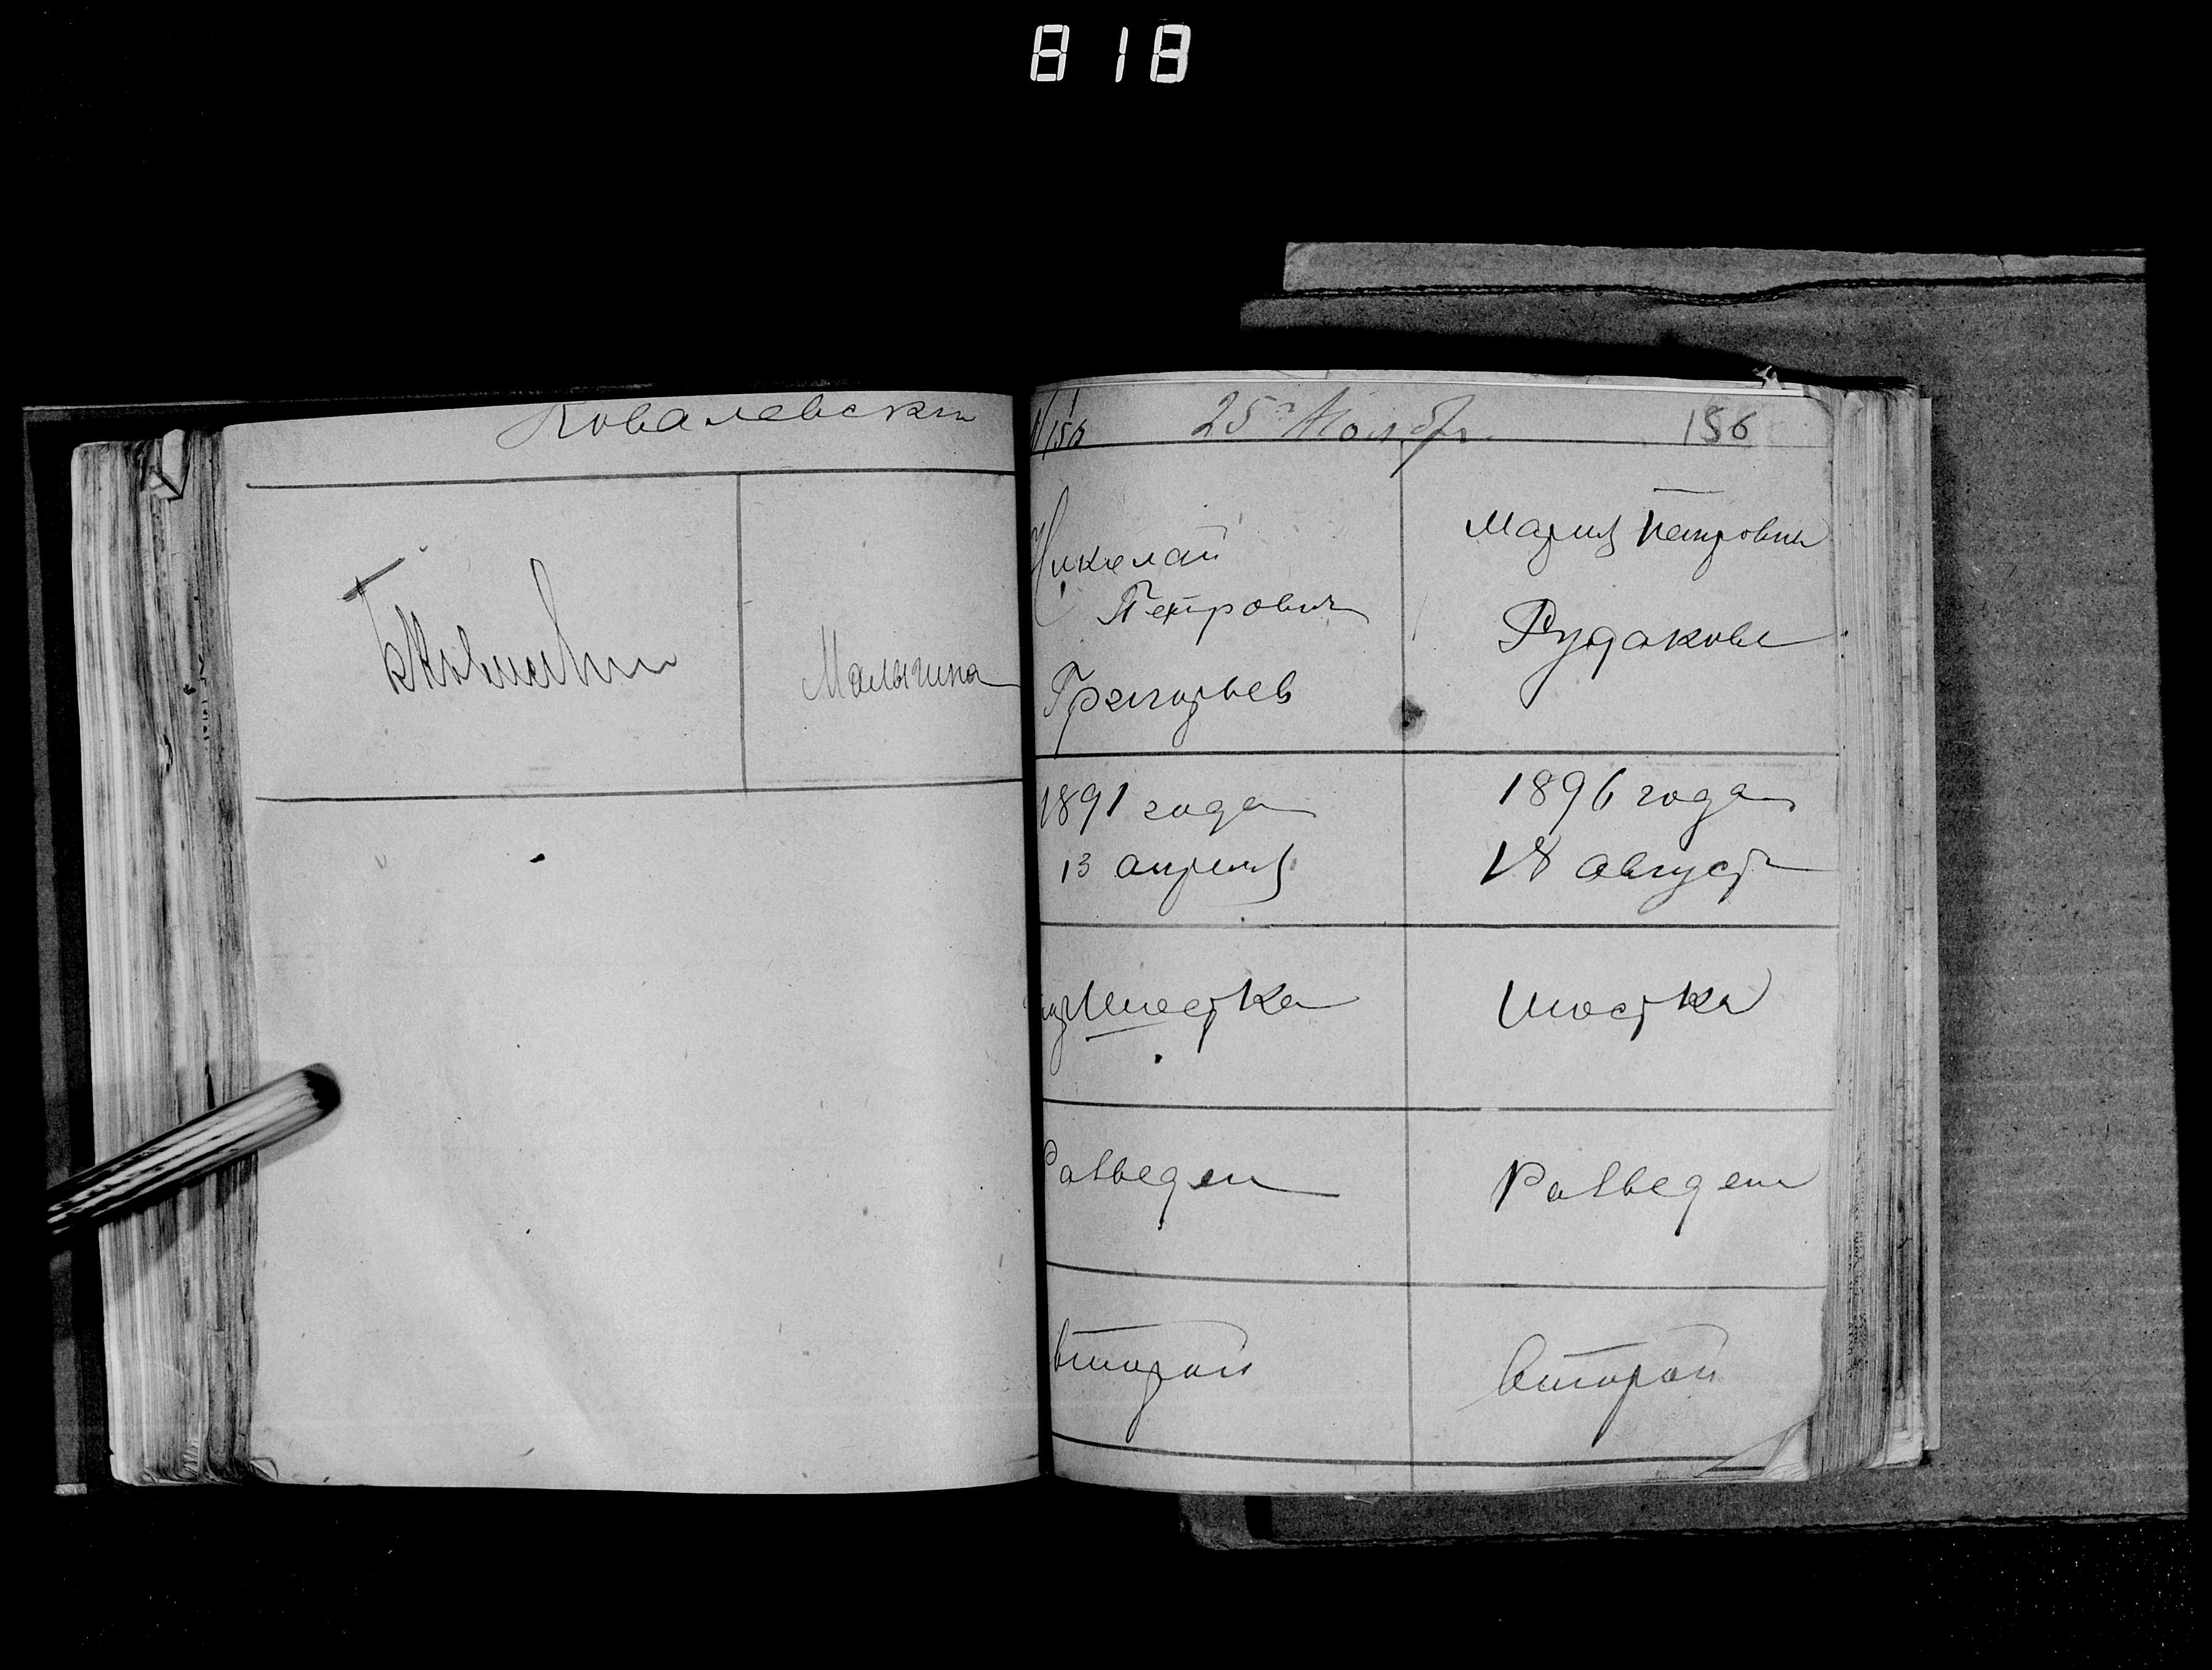 818
Ковалевский
Малыгина
№ 156 25го Ноябр. 156
Николай
Петрович
Григорьев
Мария Петровна
Рудакова
1891 года
13 апреля
1896 года
18 август
Шостка
Шостка
Разведен
Разведен
второй
второй